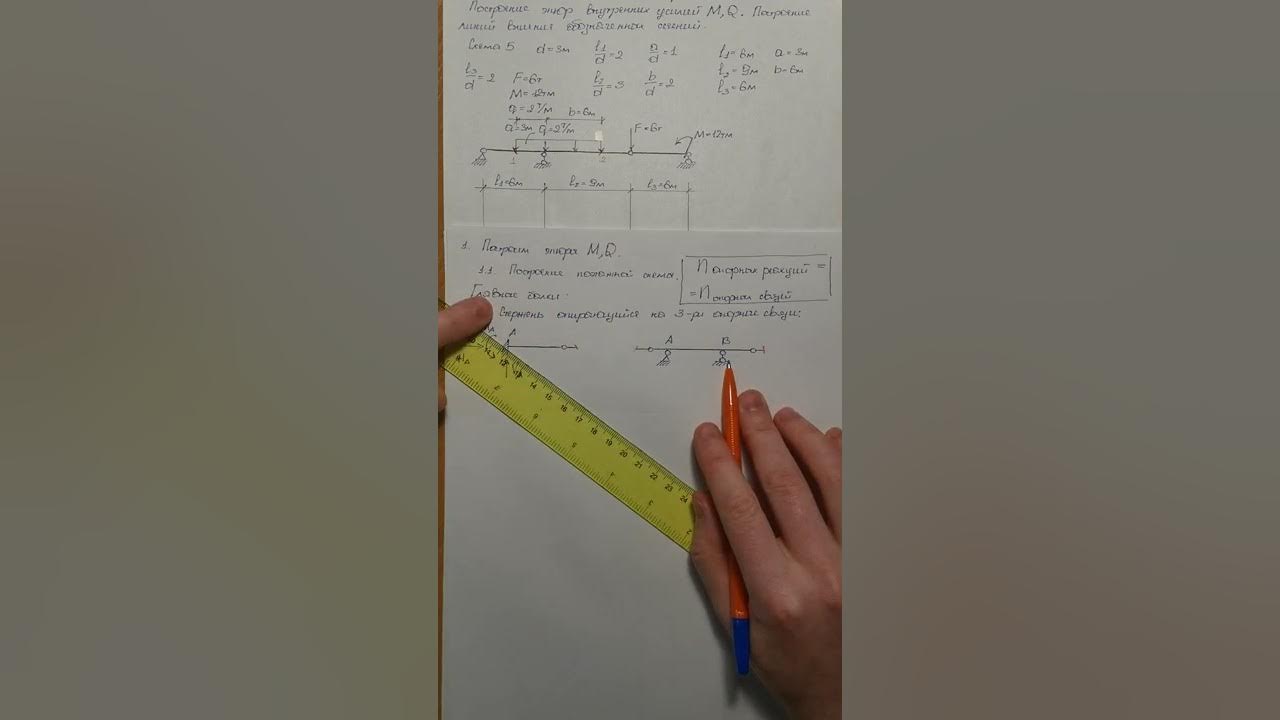 Построение эпюр внутренних усилий M, Q. Построение
линий влияния обозначенных сечений.
Схема 5 d=3м l₁/d=2 a/d=1 l₁=6м a=3м
l₃/d=2 F=6т l₂/d=3 b/d=2 l₂=9м b=6м
M=12тм l₃=6м
q=2т/м b=6м
a=3м q=2т/м F=6т M=12тм
1 2
l₁=6м l₂=9м l₃=6м
1. Построим эпюры M, Q.
1.1. Построение поэтажной схемы.
n опорных реакций =
= n опорных связей
Главные балки:
Стержень опирающийся на 3-ри опорные связи:
A A B